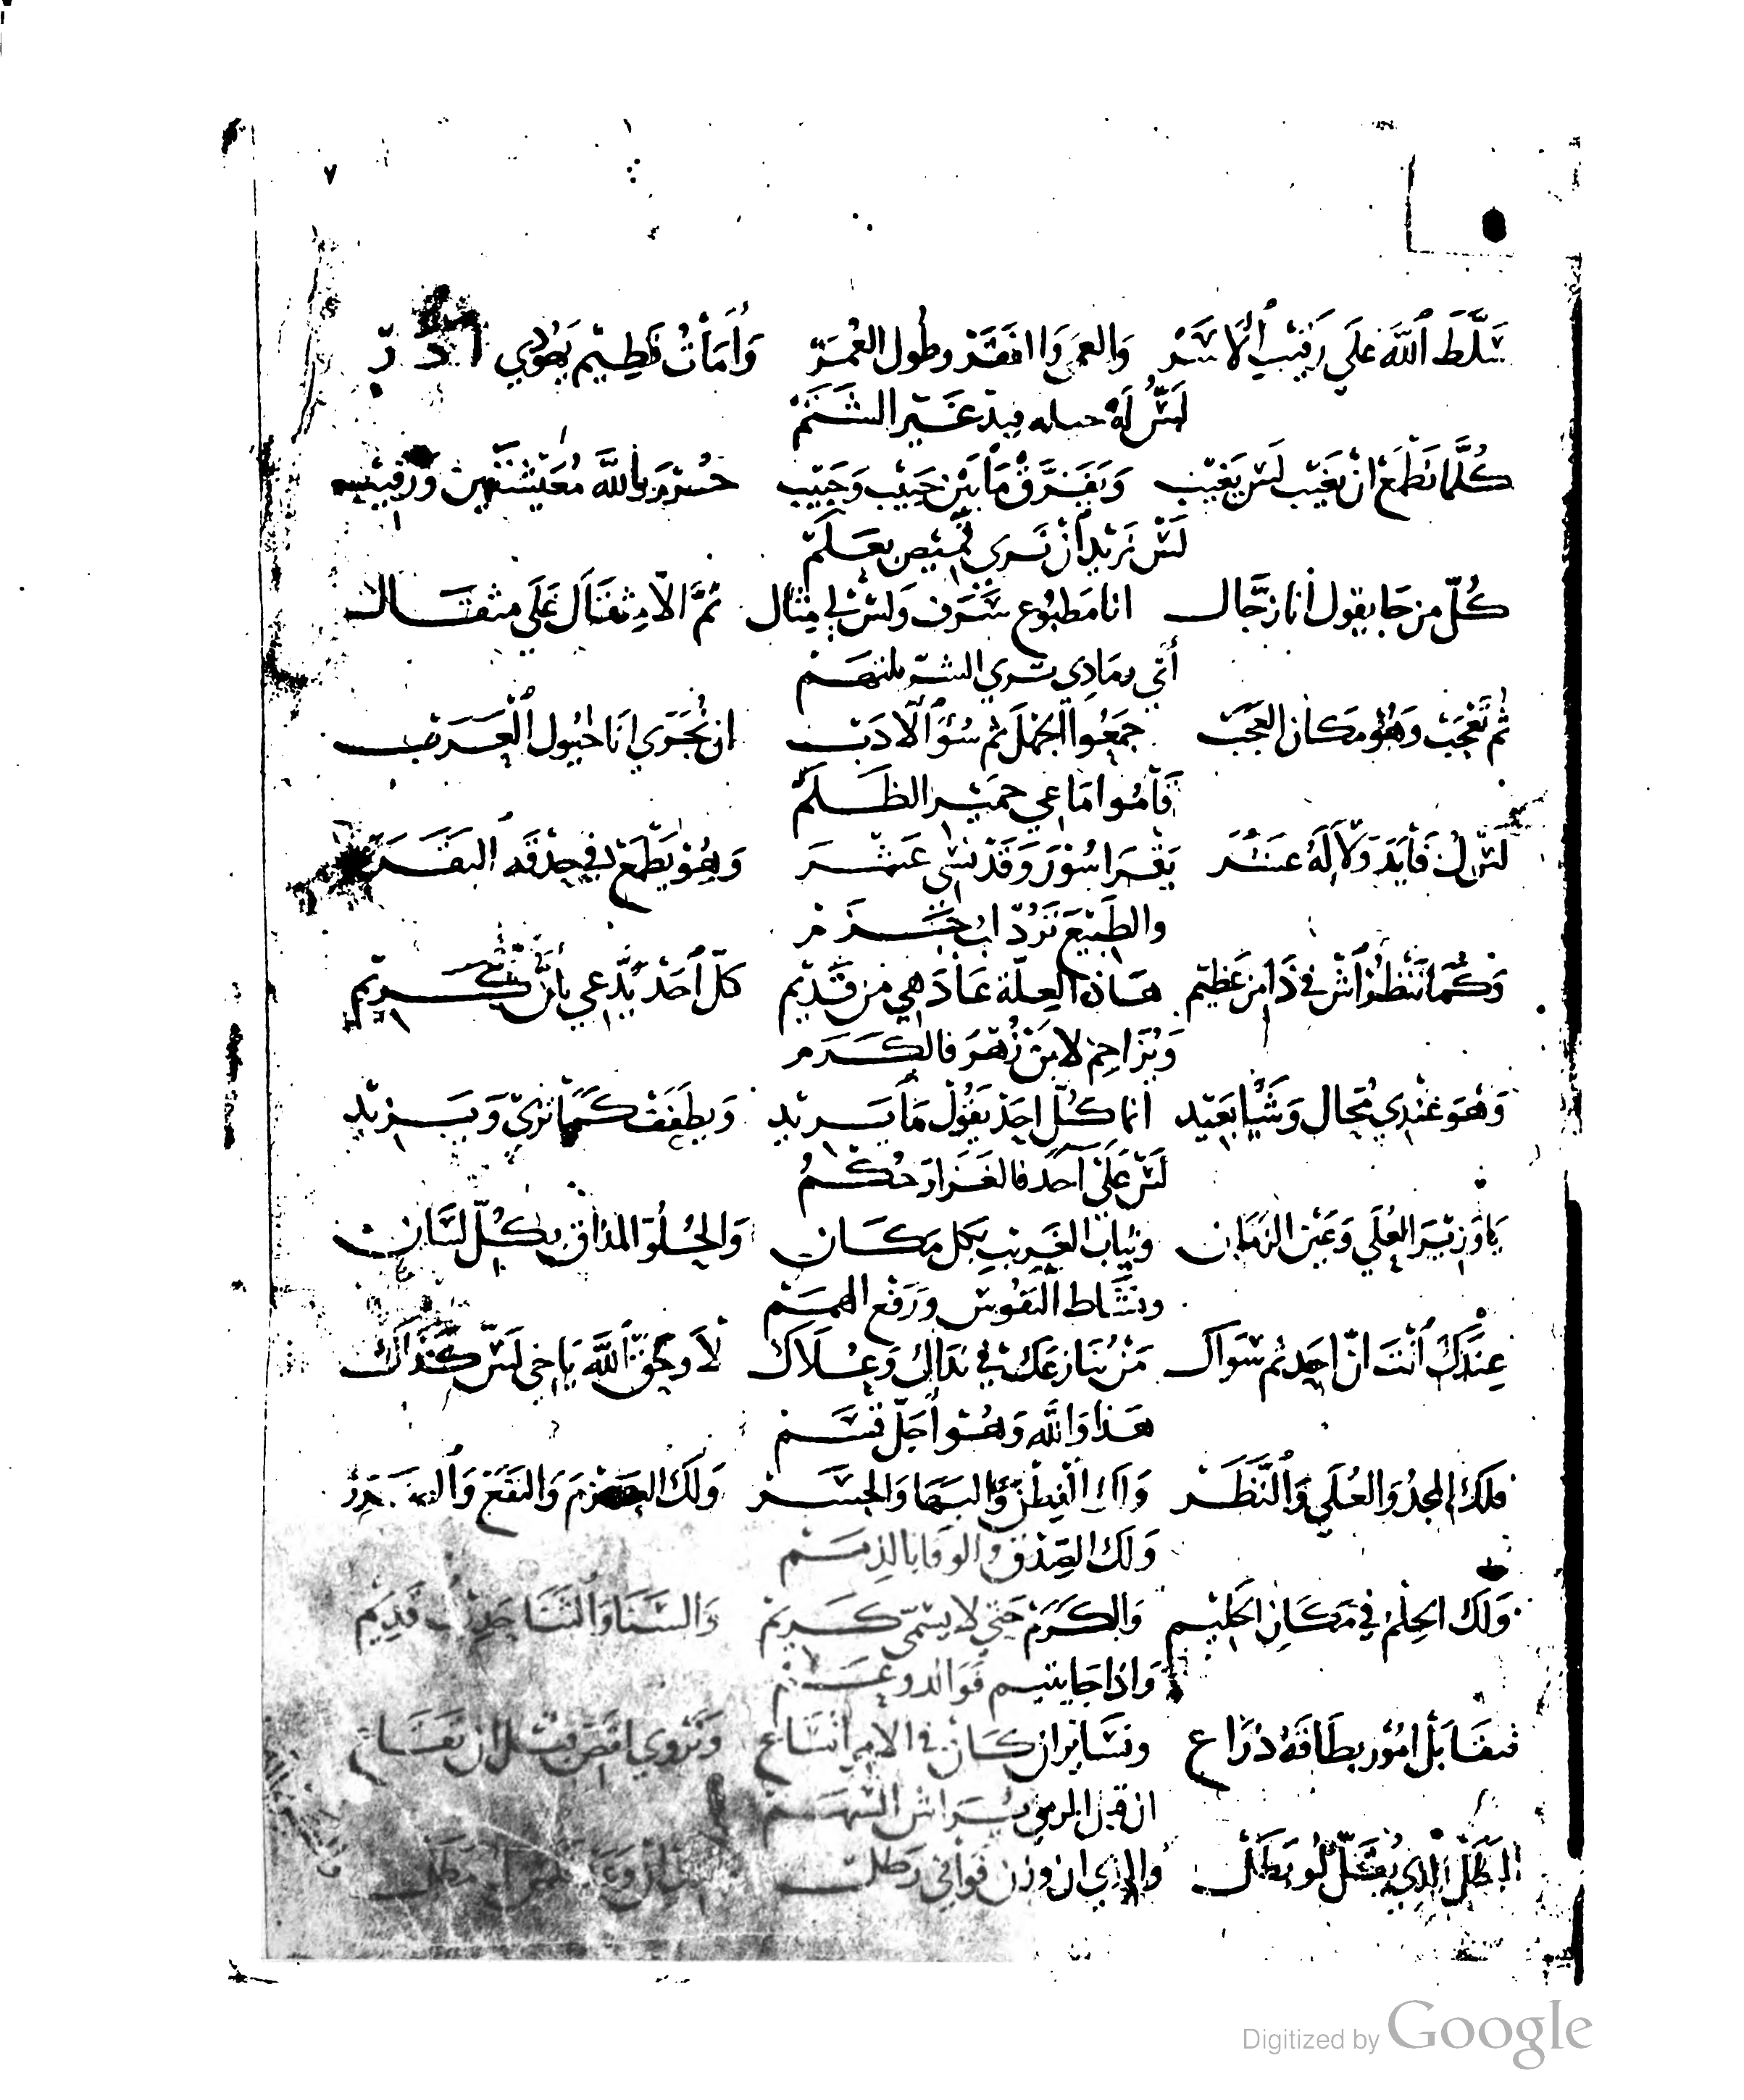 ٧
سَلَّطَ ٱللَّه عَلَى رَقِيبِ ٱلاسَرْ وَالعمى وَاا فقَرْ وطُول العُمَرْ وَأُمَاتُ فَطِيْم يَهُوْدِي
لَسْ لَهُ حياله فيد غَيْر الشَتَمْ
كُلَّمَا نَطْمَعْ انْ يَغِيْب لَسْ يَغِيْب وَيفَرَّقْ مَا بَيْن حَبِيْب وَحَبِيْب بالله ورقيب
لَسْ نَرِيْد انْ نَرى قَمِيْص بعَلَمْ
كُلّ من جَا يقول أنا زَجَّال انا مَطبُوع شَرَف وَلسْ لي مِثال ثمّ الَّا مِثقَال عَلَى مثقال
أتي رمادي تري الشر ملتهم
ثم نَعْجَبْ وَهُوْ مكان العَجَبْ جمَعُوا الجهْلَ ثم سُوَ ٱلادَبْ ان نُجَرّي انَا خيُول العَرَبْ
قَامُوا مَاعي حميْر الظَلَمْ
لَسْ لُ فَايدَ وَلَا لَهُ عشر يَقْرا سُوَرْ وَقَدْ نسي عَشر وَهُوْ يَطْمَعْ في حدقَه البقَر
والطبيع تَرُدّ
وَكُمَا نَنْظُرْ آشْ في ذَا من عَظيْم هَاذ العِلّة عَادَ هي من قَدِيْم كلّ احَدْ يَدَّعي بأنّ كَرِيْم
وَيُزَاحِمْ لابْن زُهْرَ فالكَرَمْ
وَهُوَ عنْدِي مُحَال وَشَيًا بَعِيْد انما كُلّ احَدْ يَقُولْ مَا يَرِيْد وَيطفَفْ كَمَا تريّ وَيَزيْد
لَسْ عَلَى آحَد فالغَزَارَ حُكْمُ
يَا وَزِيْرَ العُلَى وَعَيْن الزمَان وثِيَاب الغَرِيْب بكل مكَان وَالحُلُوْ المذاق بكُلّ لسَان
ونَشَاط النفُوس ورَفع الهمَمْ
عِنْدَكَ أنْتَ انّ احَد ثم سَوَاكْ مَنْ يُنَازعَك في نَدَاك وَعُلَاكْ لَا وحَقّ ٱللَّه يَا خي لَسّ كَذَاك
هَذا وَاللَّه وَهُوْ أجَلّ قسَمْ
فلَك المجدْ وَالعُلَى وَٱلنَّظَرْ وَلك الفِطَنْ وَالبَها وَالجسَرْ وَلَك الحزم وَالنفَعْ وَٱلضررْ
وَلك الصّدْق والوفا بالذِمَمْ
وَلَك الحِلمْ في مَكان الحَلِيْم وَالكَرَمْ حَتي لا يسَمّى كَرِيْم وَالسَنَا وَالثنَا حَدِيث قَدِيْم
وَاذا جَا يتيم فَوَالد وعَمْ
فتقَابلْ امُوْر بطَاقَهْ ذرَاع وتسَابر ان كَان في الامر اتّسَاع وَتَروي
ان قبل الرمي يُرَاش السَهَمْ
البَطَلْ الذِي يُقتَلّ لُو بَطَلْ والذِي ان وزن قوافي رَطلْ
Digitized by Google